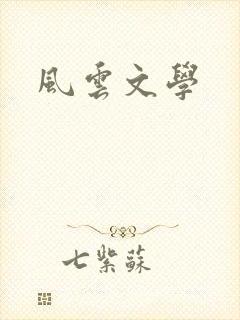 風雲文學
七紫蘇